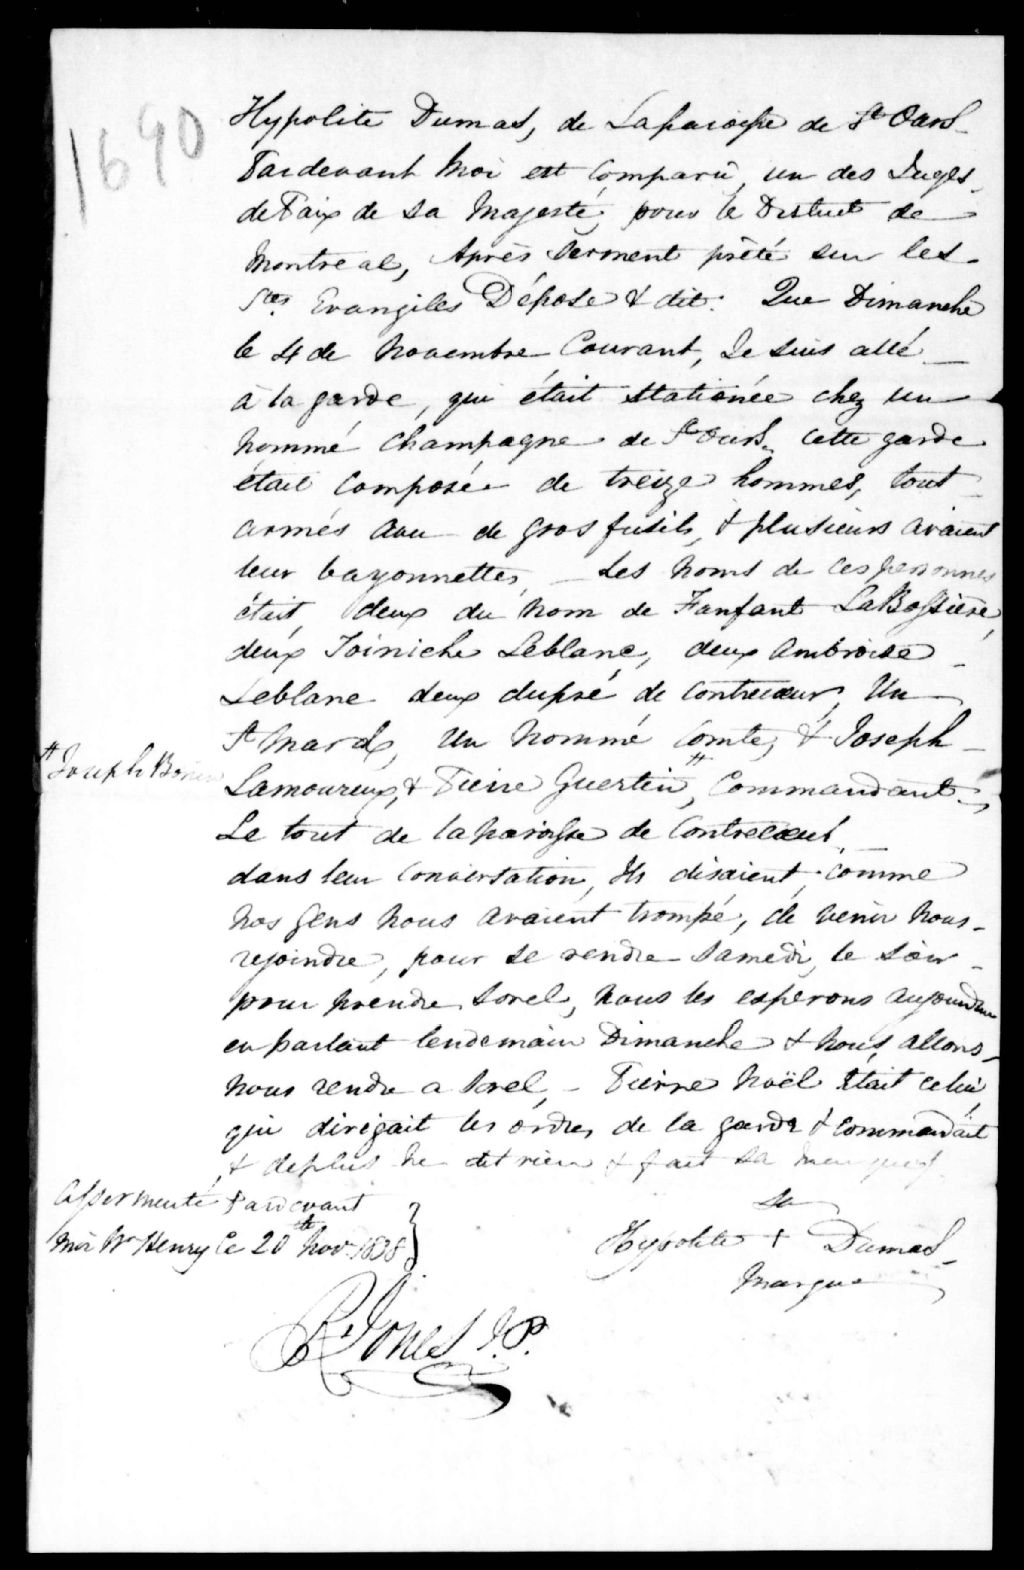 1690
Hypolite Dumas, de Laparoisse de St Ours
Pardevant Moi est Comparû, un des Juges
de Paix de sa Majesté, pour le District de
Montreal, Après Serment prêté sur les
Stes Evangiles Dépose & dit. Que Dimanche
le 4 de Novembre Courant, Je suis allé
à la garde, qui était stationée chez un
nommé Champagne de St Ours, cette garde
était Composée de treize hommes, tout
armés avec de gros fusils, & plusieurs avaient
leur bayonnettes, Les Noms de ces personnes
était, deux du Nom de Fanfant LaBossière,
deux Toiniche Leblanc, deux Ambroise
Leblanc deux dupré de Contrecœur, Un
St Mard, Un Nommé Comte, & Joseph
# Joseph Bonin
Lamoureux, & Pierre Guertin, # Commandant
Le tout de la paroisse de Contrecœur
dans leur Conversation, Ils disaient, comme
Nos Gens Nous avaient trompé, de venir Nous
rejoindre, pour se rendre Samedi, le soir
pour prendre Sorel, Nous les esperons aujourdhui
en parlant lendemain Dimanche & Nous, allons
Nous rendre a Sorel, Pierre Noël était celui
qui dirigait les ordres de la garde & commandait
& deplus ne dit rien & fait sa
Assermenté Pardevant
Moi Wm Henry Ce 20th Nov 1838
sa
Hypolite + Dumas
Marque
R. Jones J.P.